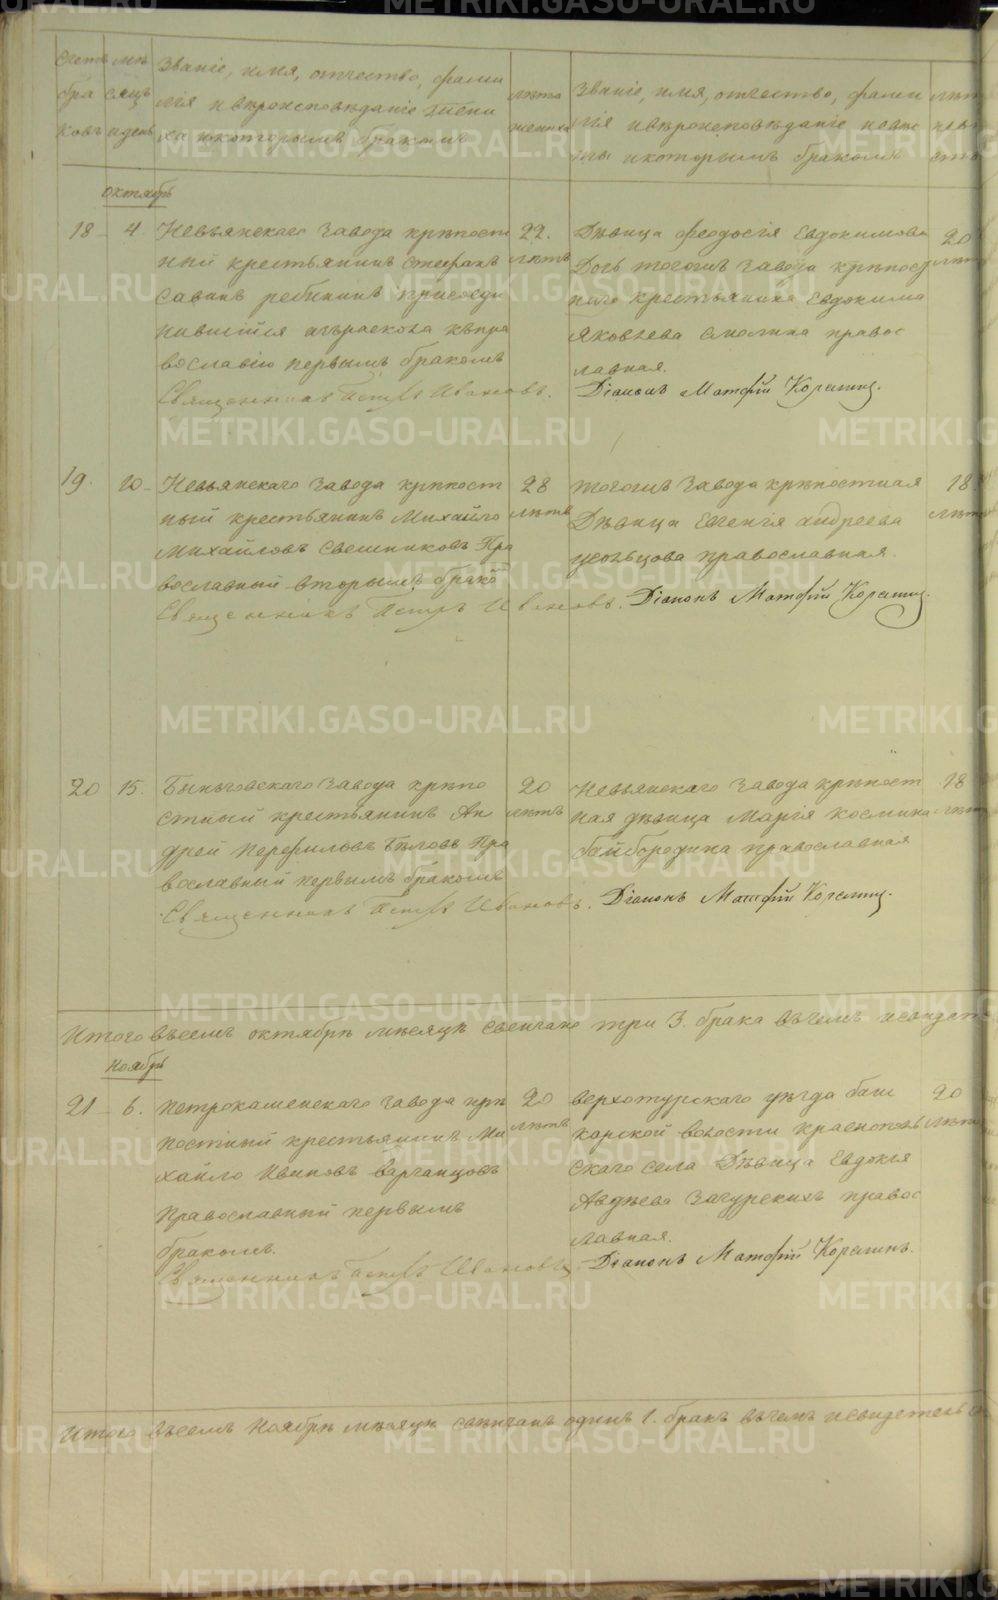 Счетъ бра ковъ
мѣ сяцъ и день
Званіе, имя, отчество, фами
лія и вѣроисповѣданіе жени
ха и которымъ бракомъ
лѣта жениха
Званіе, имя, отчество, фами
лія и вѣроисповѣданіе невѣс
ты и которымъ бракомъ
лѣт невѣ сты
октябрь
18 4 Невьянскаго завода крѣпост 22.
ный крестьянинъ Стефанъ лѣтъ
Савинъ ребининъ присоеди
нившійся изъ раскола къ пра
вославію первымъ бракомъ
Священникъ Петръ Ивановъ.
Дѣвица феодосія Евдокимова 20
Дочь тогожъ завода крѣпост лѣтъ
наго крестьянина Евдокима
Яковлева Смолина правос
лавная.
Діаконъ Матфій Корелинъ.
19. 10 Невьянскаго завода крѣпост 28
ный крестьянинъ Михайло лѣтъ
Михайловъ Свешниковъ Пра
вославный вторымъ брако
Священникъ Петръ Ивановъ.
тогожъ завода крѣпостная 18
Дѣвица Евгенія андреева лѣтъ
усольцова православная.
Діаконъ Матфій Корелинъ.
20 15. Быньговскаго завода крѣпо 20
стный крестьянинъ Ан лѣтъ
дрей Перфильевъ Бѣловъ Пра
вославный первымъ бракомъ
Священникъ Петръ Ивановъ.
Невьянскаго завода крѣпост 18
ная дѣвица Марія космина лѣтъ
байбородина православная
Діаконъ Матфій Корелинъ.
Итого въсемъ октябрѣ мѣсяцѣ свенчано три 3. брака въчемъ исвидете
Ноябрь
21 6. Петрокаменскаго завода крѣ 20
постный крестьянинъ Ми лѣтъ
хайло Ивановъ варганцовъ
Православный первымъ
бракомъ.
Священникъ Петръ Ивановъ
верхотурскаго уѣзда баш 20
карской волости краснополь лѣтъ
скаго села Дѣвица Евдокія
Авдѣева Загурскихъ правос
лавная.
Діаконъ Матфій Корелинъ.
Итого въсемъ Ноябрѣ мѣсяцѣ свенчанъ одинъ 1. бракъ въчемъ исвидетель
METRIKI.GASO-URAL.RU